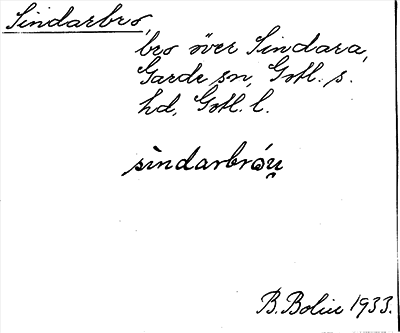 Sindarbro,
bro över Sindara,
Garde sn, Gotl. s.
hd, Gotl. l.
sìndarbróu̯
B. Bolin 1933.